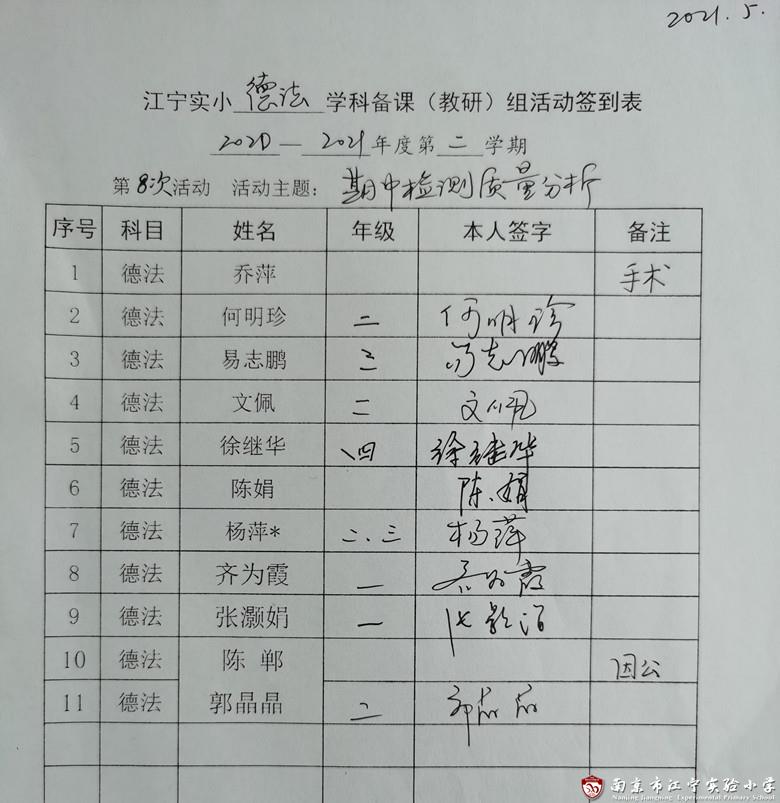 2021.5.
江宁实小德法学科备课（教研）组活动签到表
2020—2021年度第二学期
第8次活动 活动主题：期中检测质量分析
序号 科目 姓名 年级 本人签字 备注
1 德法 乔萍 手术
2 德法 何明珍 二 何明珍
3 德法 易志鹏 三 易志鹏
4 德法 文佩 二 文佩
5 德法 徐继华 四 徐继华
6 德法 陈娟 陈娟
7 德法 杨萍* 二、三 杨萍
8 德法 齐为霞 一 齐为霞
9 德法 张灏娟 一
10 德法 陈郸 因公
11 德法 郭晶晶 二 郭晶晶
南京市江宁实验小学
Nanjing Jiangning Experimental Primary School